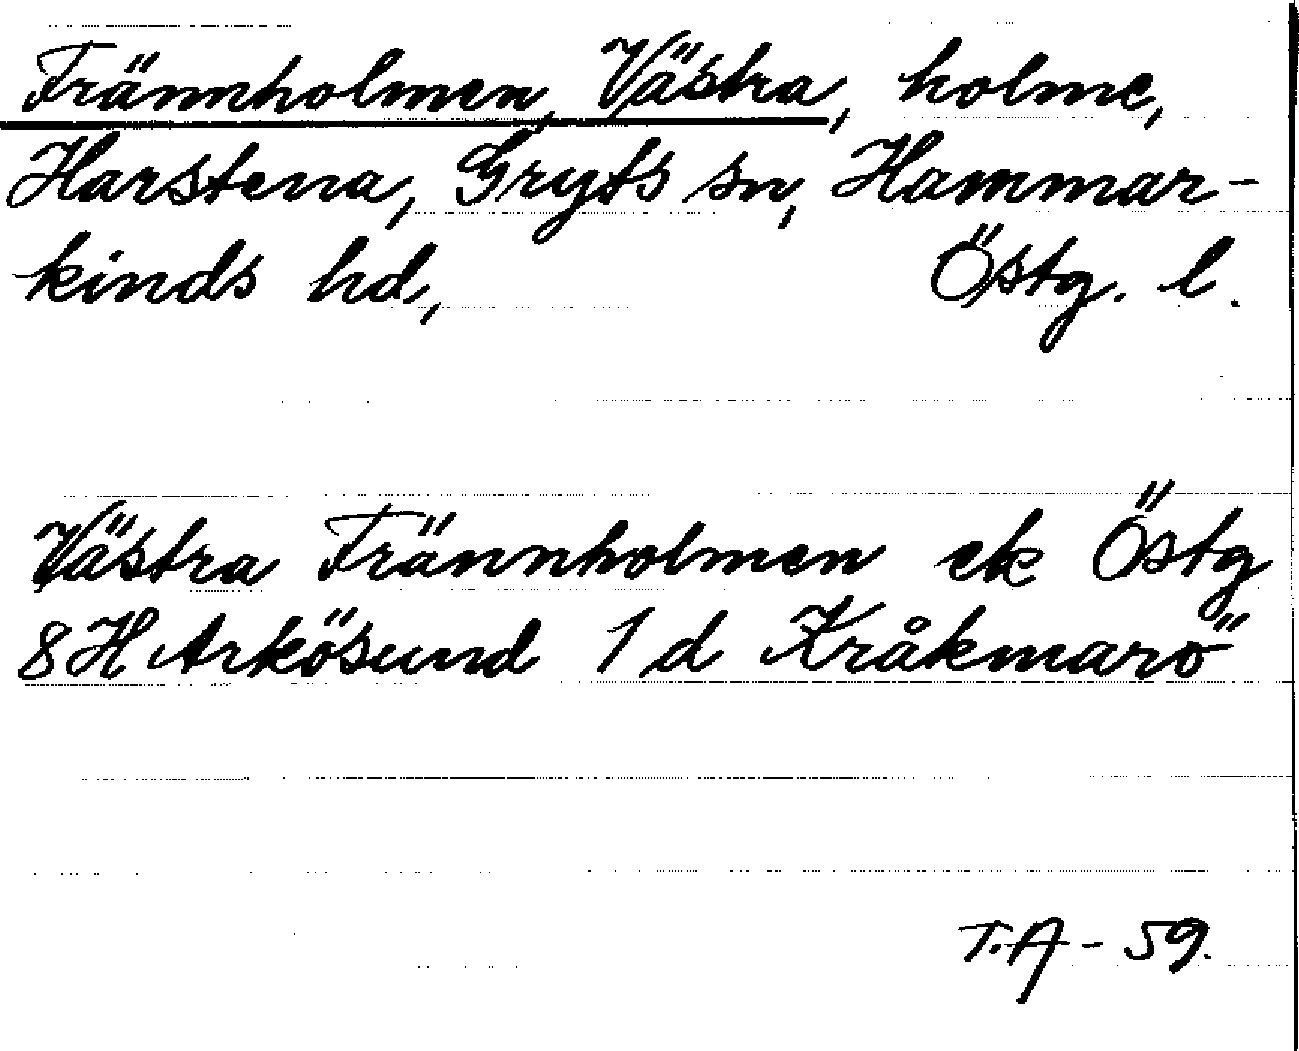 Frännholmen, Västra, holme,
Harstena, Gryts sn, Hammar-
kinds hd, Östg. l.
Västra Frännholmen ek Östg
8H Arkösund 1d Kråkmarö
T.A - 59.